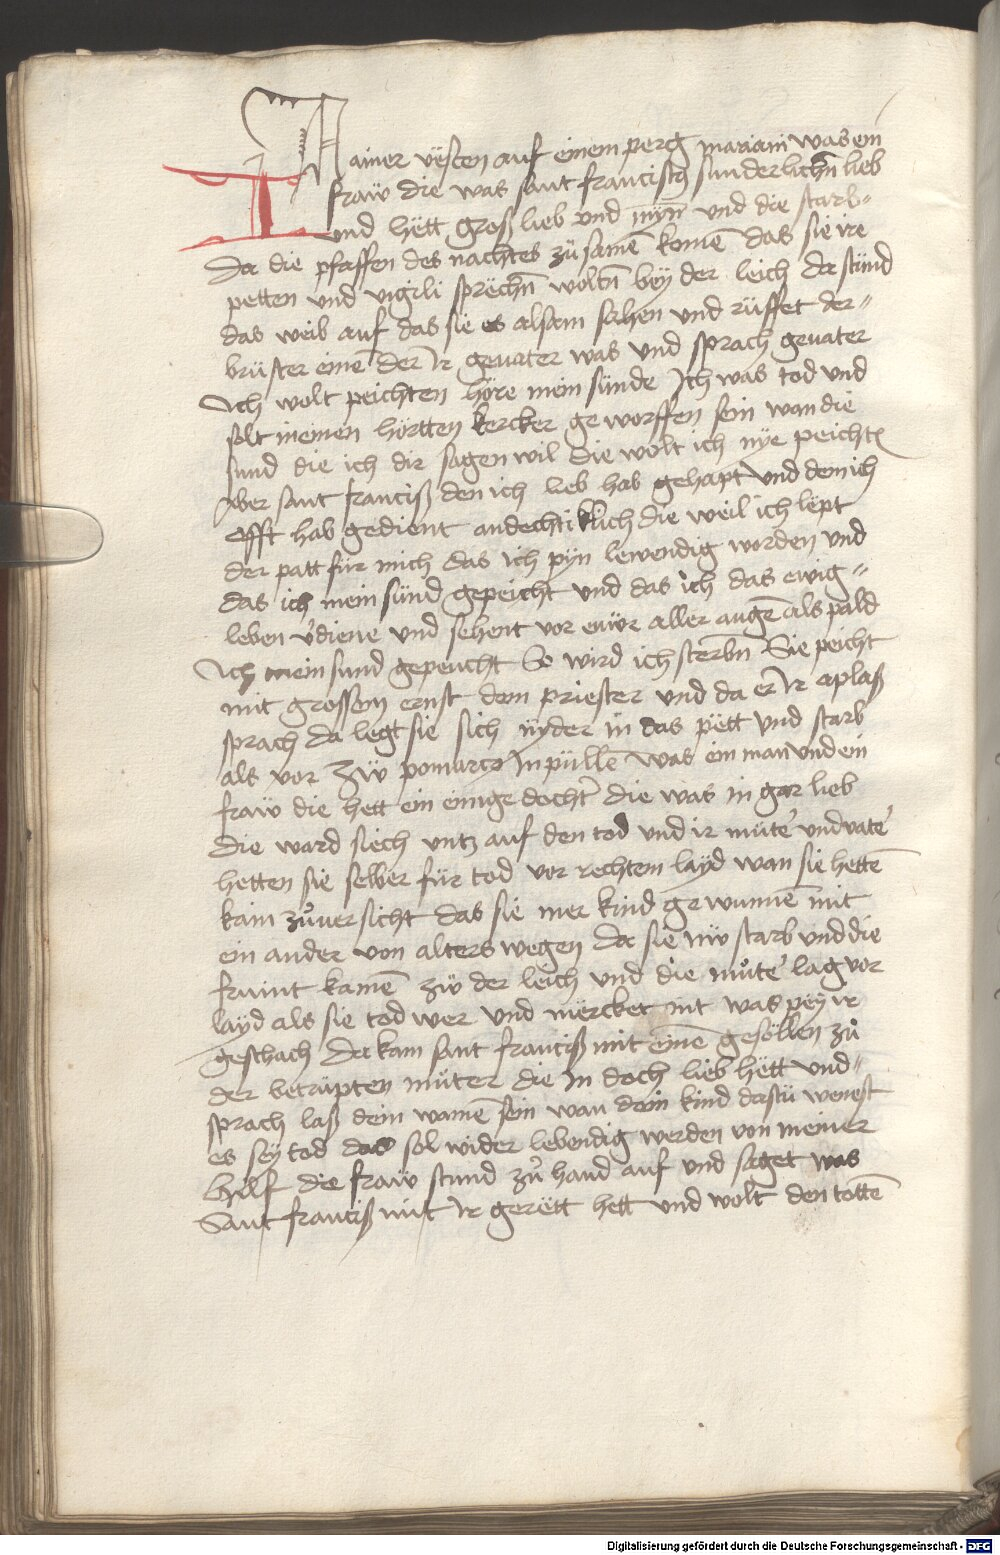 In ainer vësten auf einem perg mariani was ein
fraẅ die was sant franciscẏ sunderlichñ lieb
und hëtt groß lieb und mẏñ und die starb
Da die pfaffen des nachtes zů samē komē das sie ire
petten und vigili sprëchñ woltñ beẏ der leich da stůnd
das weib auf das sie es alsam sahen und růffet der
brüster einē der ir geuater was und sprach geuater
Ich wolt peichten höre mein sünde Ich was tod und
solt in einen hörtten kercker geworffen sein wan die
sund die ich dir sagen wil die wolt ich nẏe peichtē
Aber sant franciß den ich lieb hab gehapt und dem ich
offt hab gedient andechtiklich die weil ich lëpt
der patt für mich das ich pẏn lewendig worden und
das ich mein sünd gepeicht und das ich das ewig
leben v̓diene und sehent vor eüwr aller augē als pald
Ich mein sund gepeucht So wird ich sterbñ Sie peicht
mit grossem ernst dem priester und da er ir aplaß
sprach da legt sie sich nẏder in das pëtt und starb
als vor Zẅ pomarco In püllē was ein man und ein
fraẅ die hett ein einige docht̓ die was in gar lieb
die ward siech untz auf den tod und ir můte̓ und vate̓
hetten sie selber für tod vor rechtem laẏd wan sie hettē
kain zůuersicht das sie mer kind gewunnē mit
ein ander von alters wegen da sie nẅ starb und die
fraint kamē zẅ der leich und die můte̓ lag vor
laẏd als sie tod wer und mërcket nit was peẏ ir
geschach Da kam sant franciß mit einē gesöllen zů
der betrüpten můter die in doch lieb hëtt und
sprach laß dein wainē sein wan dein kind das tü wenest
es seẏ tod das sol wider lebendig werden von meiner
hilf die fraẅ stund zů hand auf und saget was
Sant franciß mit ir gerëtt hett und wolt den tottē
Digitalisierung gefördert durch die Deutsche Forschungsgemeinschaft - DFG